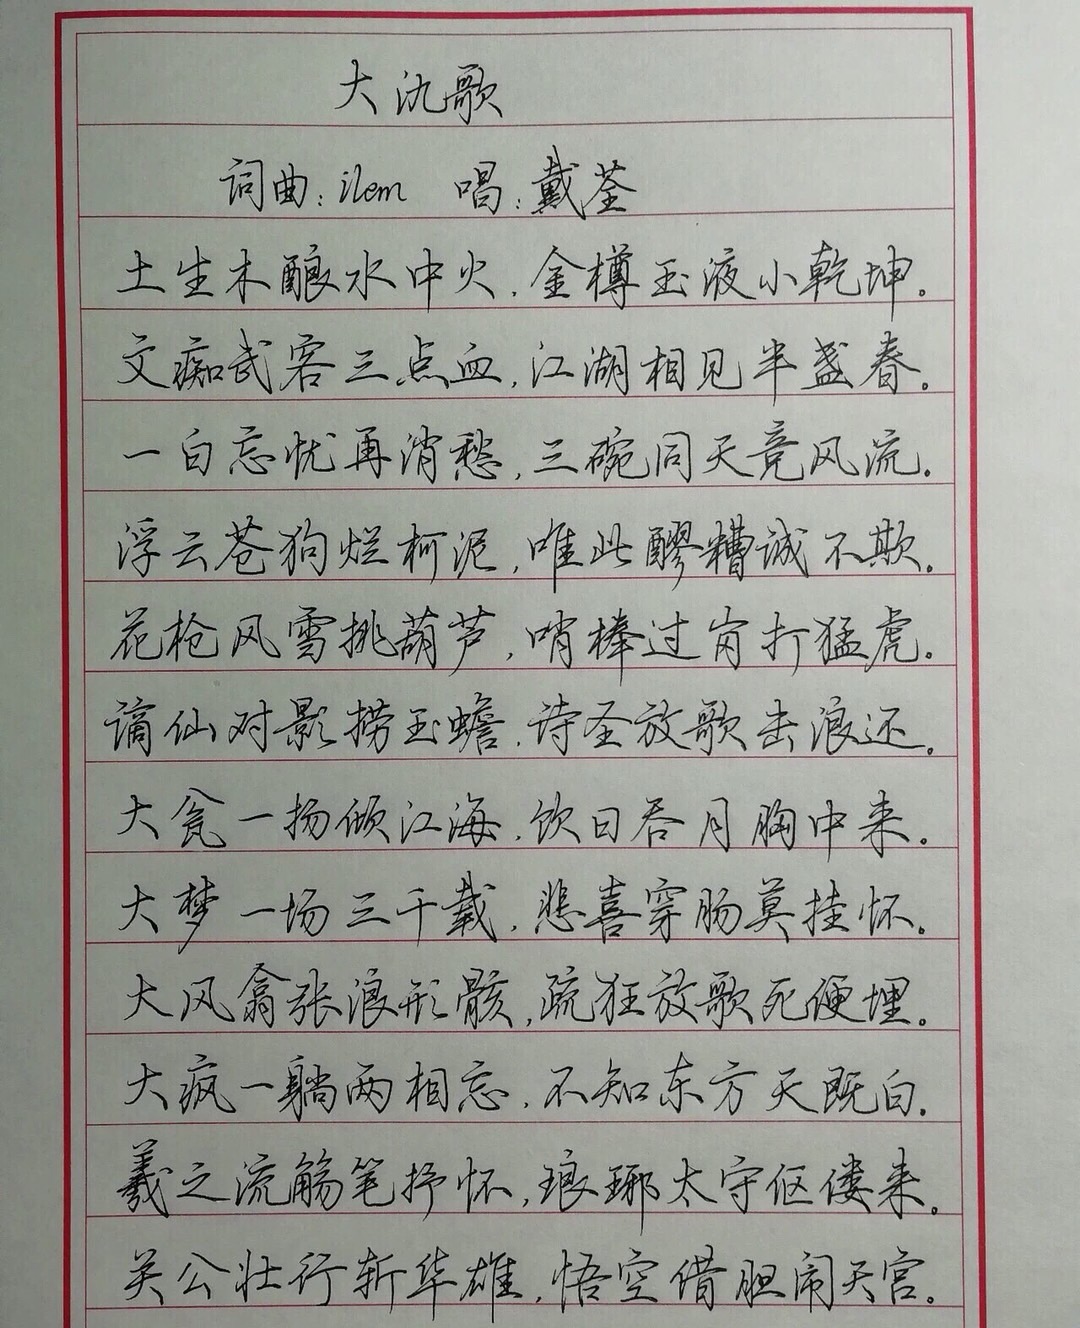 大氿歌
词曲：ilem 唱：戴荃
土生木酿水中火，金樽玉液小乾坤。
文痴武客三点血，江湖相见半盏春。
一白忘忧再消愁，三碗同天竞风流。
浮云苍狗烂柯泥，唯此醪糟诚不欺。
花枪风雪挑葫芦，哨棒过岗打猛虎。
谪仙对影捞玉蟾，诗圣放歌击浪还。
大瓮一扬倾江海，饮日吞月胸中来。
大梦一场三千载，悲喜穿肠莫挂怀。
大风翕张浪形骸，疏狂放歌死便埋。
大疯一躺两相忘，不知东方天既白。
羲之流觞笔抒怀，琅琊太守伛偻来。
关公壮行斩华雄，悟空借胆闹天宫。